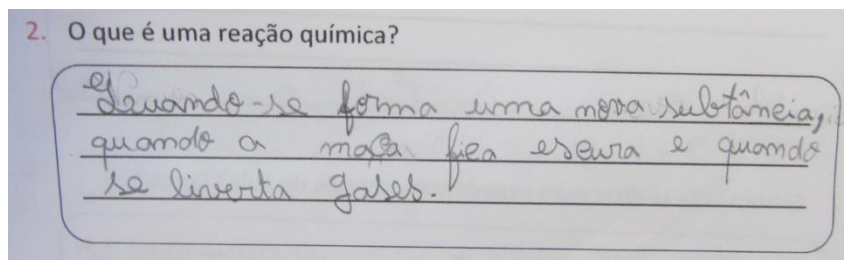 2. O que é uma reação química?
Quando-se forma uma nova subtância,
quando a maça fica escura e quando
se liverta gases.